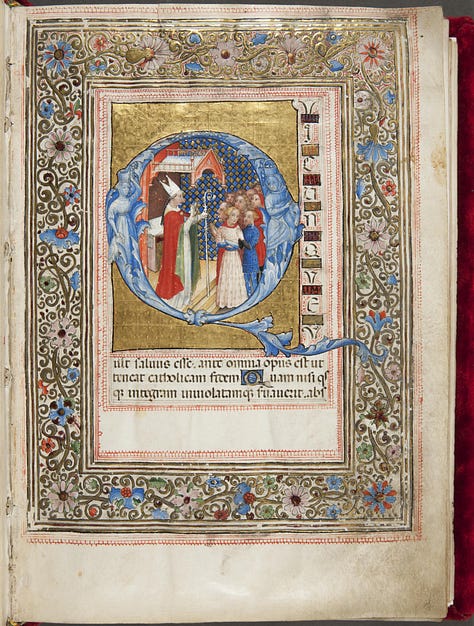 QuicunQVE V
ult saluus esse. ante omnia opus est ut
teneat catholicam fidem Quam nisi qs
q; integram inuiolatamq; suauerit. abs